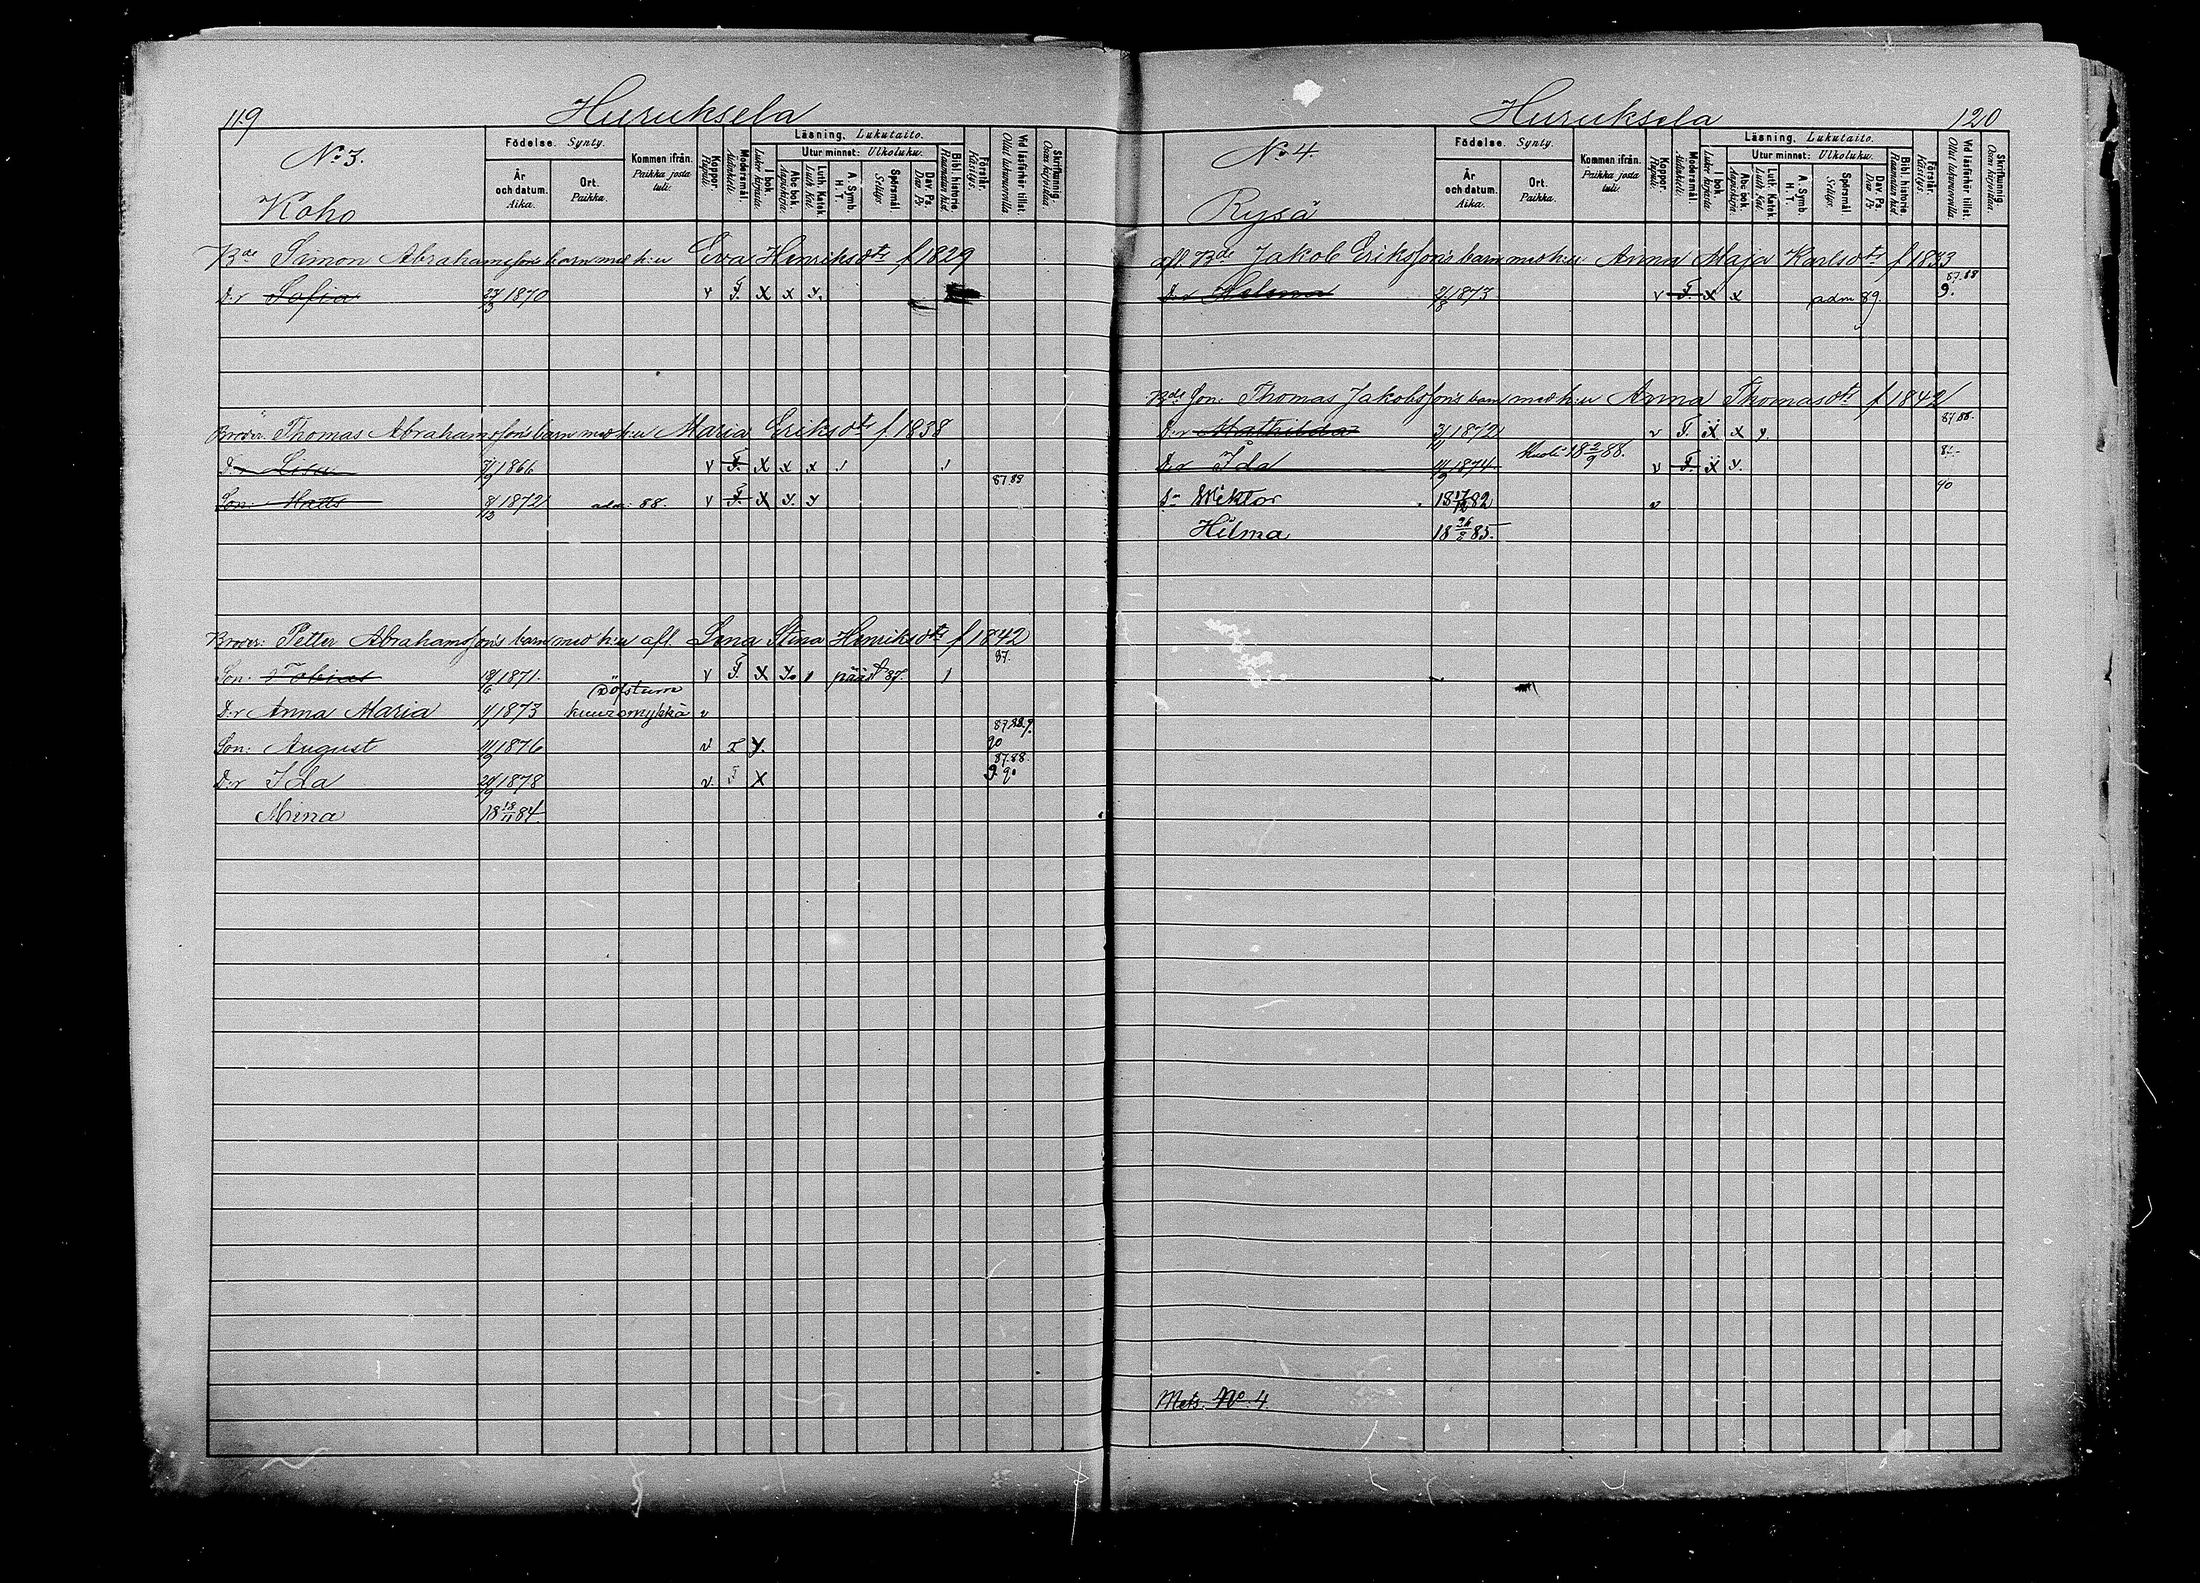 119 Huruksela
No 3.
Koho
Födelse. Synty.
År och datum. Aika.
Ort. Paikka.
Kommen ifrån. Paikka josta tuli:
Koppor. Rupuli.
Modersmål. Äidinkieli.
Läsning. Lukutaito.
I bok. Lukee kirjasta.
Utur minnet: Ulkoluku.
Abc bok. Aapiskirja.
Luth. Katek. Luth. Kat.
A. Symb. H. T.
Spörsmål. Selitys.
Dav. Ps. Daw. Ps.
Bibl. historie. Raamatun hist.
Förstår. Käsitys.
Vid läsförhör tillst. Ollut lukuvuoroilla.
Skrifkunnig. Osaa kirjoittaa.
Bde Simon Abrahamssons barn med h:u Eva Henriksdtr f 1829
D:r Sofia 27/3 1870 v F. x x y.
Broder: Thomas Abrahamssons barn med h:u Maria Eriksdtr f 1838
D:r Lisa 1866 v F. x x x
Son: Matts 1872 adm: 88. v F. x y. y 87 88
Broder: Petter Abrahamssons barn med h:u afl. Lena Stina Henriksdtr f 1842
Son: Tobias 1871. v F. x pääst 87. 87.
Döfstum
D:r Anna Maria 1/1 1873 kuuromykkä v
Son: August 11/9 1876 v F y. 87.88.9. 90
D:r Ida 1878 v. F x 87.88. 9. 90
Mina 18 18/11 84.
Huruksela 120
No 4.
Rysä
Födelse. Synty.
År och datum. Aika.
Ort. Paikka.
Kommen ifrån. Paikka josta tuli:
Koppor. Rupuli.
Modersmål. Äidinkieli.
Läsning. Lukutaito.
I bok. Lukee kirjasta.
Utur minnet: Ulkoluku.
Abc bok. Aapiskirja.
Luth. Katek. Luth. Kat.
A. Symb. H. T.
Spörsmål. Selitys.
Dav. Ps. Daw. Ps.
Bibl. historie. Raamatun hist.
Förstår. Käsitys.
Vid läsförhör tillst. Ollut lukuvuoroilla.
Skrifkunnig. Osaa kirjoittaa.
afl. Bde Jakob Erikssons barn med h:u Anna Maja Karlsdtr f 1833
D:r Helena 1873 v F. x x adm 89. 87.88 9.
Bde Son: Thomas Jakobssons barn med h:u Anna Thomasdtr f 1842
D:r Mathilda 1872 v F. x x y. 87.88.
D:r Ida 1874 Kuoli 18 2/9 88. v F. x y.
S:n Wiktor 18 17/12 82 v 90
Hilma 18 26/2 85.
Mets. No. 4.